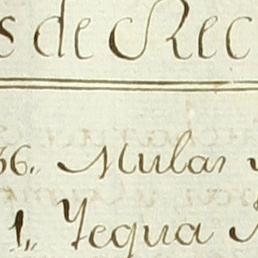 s de Rec
36,, Mulas y
1,, Yegua